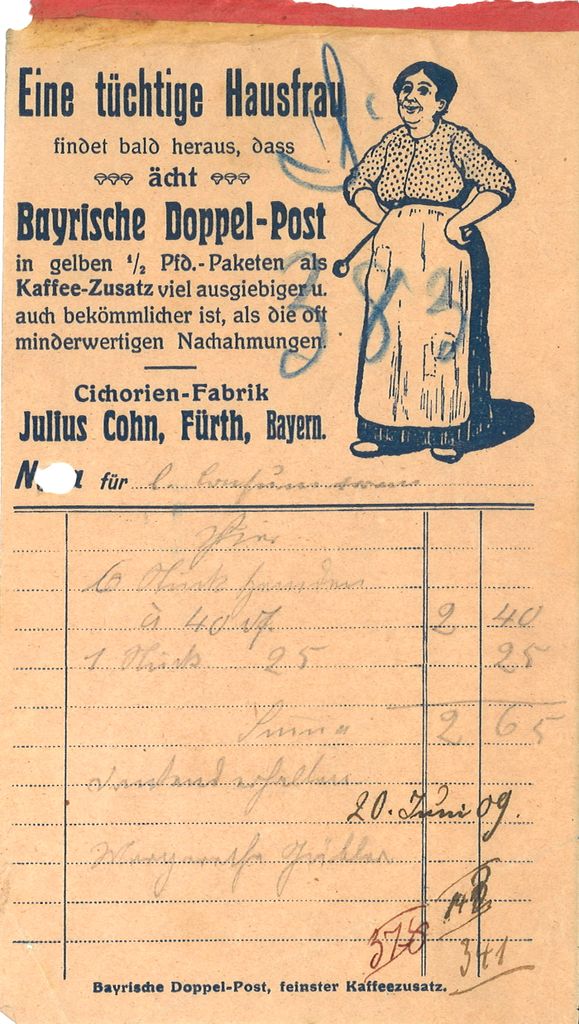 Eine tüchtige Hausfrau
findet bald heraus, dass
ächt
Bayrische Doppel-Post
in gelben ½ Pfd.-Paketen als
Kaffee-Zusatz viel ausgiebiger u.
auch bekömmlicher ist, als die oft
minderwertigen Nachahmungen.
Cichorien-Fabrik
Julius Cohn, Fürth, Bayern.
383
für
Hier
6 Stück Hemden
à 40 Pf. 2 40
1 Stück 25 25
Suma 2 65
dankend erhalten
20. Juni 09.
Margarethe
148
578
341
Bayrische Doppel-Post, feinster Kaffeezusatz.